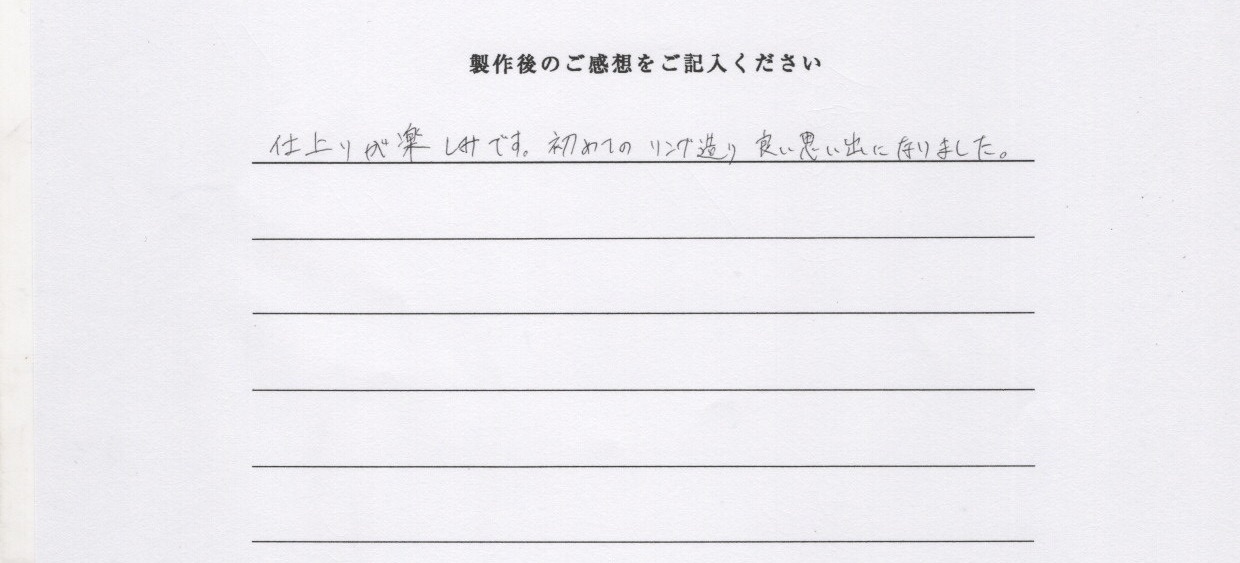 製作後のご感想をご記入ください
仕上りが楽しみです。初めてのリング造り良い思い出になりました。